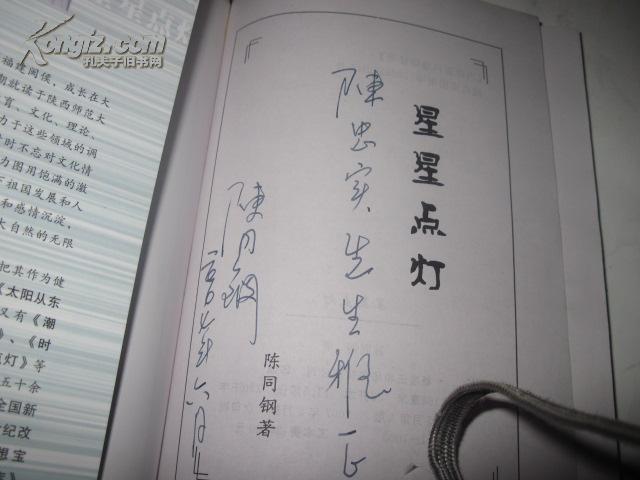 Kongfz.com
孔夫子旧书网
星星点灯
陳忠实先生雅正
陳同钢
陈同钢著
福建闽侯，成长在大
期就读于陕西师范大
育、文化、理论、
力于这些领域的调
时不忘对文化情
力图用饱满的激
祖国发展和人
和感情沉淀，
大自然的无限
把其作为健
《太阳从东
又有《潮
》、《时
点灯》等
五十余
全国新
纪改
想宝